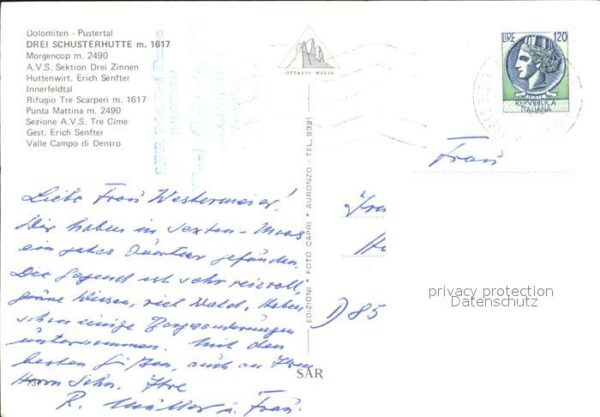 Dolomiten - Pustertal
DREI SCHUSTERHUTTE m. 1617
Morgencop m. 2490
A.V.S. Sektion Drei Zinnen
Huttenwirt, Erich Senfter
Innerfeldtal
Rifugio Tre Scarperi m. 1617
Punta Mattina m. 2490
Sezione A.V.S. Tre Cime
Gest. Erich Senfter
Valle Campo di Dentro
OTTAVIO MARIN
LIRE 120
REPVBBLICA
ITALIANA
EDIZIONI FOTO CAPRI * AURONZO - TEL. 9321
Frau
D 85
privacy protection
Datenschutz
Liebe Frau Westermeier!
Wir haben in Sexten-Moos
ein gutes Quartier gefunden.
Die Gegend ist sehr reizvoll,
grüne Wiesen, viel Wald. Haben
schon einige Bergwanderungen
unternommen. Mit den
besten Grüßen, auch an Ihren
Herrn Sohn, Ihre
R. Müller u. Frau.
SAR